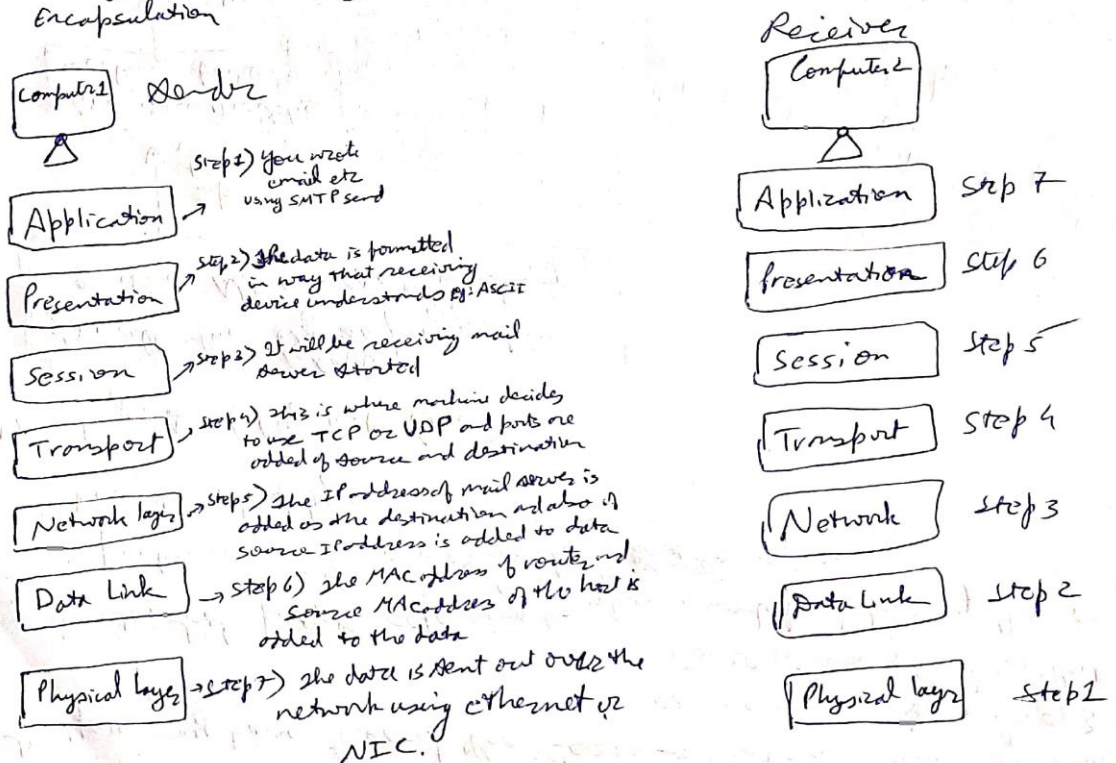 Encapsulation
Computer1 Sender
Application
Step 1) you wrote
email etc
using SMTP send
Presentation
Step 2) The data is formatted
in way that receiving
device understands eg: ASCII
Session
Step 3) It will be receiving mail
server started
Transport
Step 4) This is where machine decides
to use TCP or UDP and ports are
added of source and destination
Network layer
Step 5) The IP address of mail server is
added as the destination and also if
source IP address is added to data
Data Link
Step 6) The MAC address of router and
source MAC address of the host is
added to the data
Physical layer
Step 7) The data is sent out over the
network using ethernet or
NIC.
Receiver
Computer2
Application Step 7
Presentation Step 6
Session Step 5
Transport Step 4
Network Step 3
Data Link Step 2
Physical layer Step 1